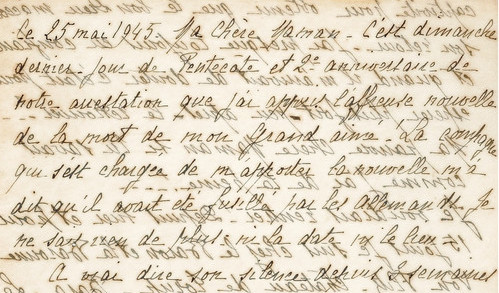 le 25 mai 1945. Ma Chère Maman - C'est dimanche
dernier. Jour de Pentecote et 2e anniversaire de
notre arrestation que j'ai appris l'affreuse nouvelle
de la mort de mon grand aimé. La compagne
qui s'est chargée de m'apporter la nouvelle m'a
dit qu'il avait été fusillé par les allemands. Je
ne sais rien de plus ni la date ni le lieu -
A vrai dire son silence depuis 2 semaines